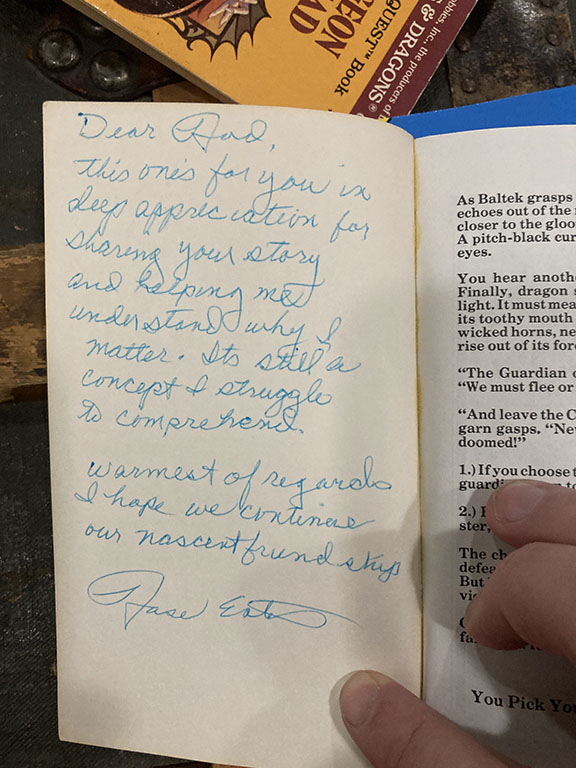 GEON
AD
QUEST™ Book
bbies, Inc., the producers of
S & DRAGONS®
Dear Rod,
this one's for you in
deep appreciation for
sharing your story
and helping me
understand why I
matter. Its still a
concept I struggle
to comprehend.
warmest of regards
I hope we continue
our nascent friendship
Rose Estes
As Baltek grasps
echoes out of the
closer to the gloo
A pitch-black cur
eyes.
You hear anoth
Finally, dragon s
light. It must mea
its toothy mouth
wicked horns, ne
rise out of its for
"The Guardian o
"We must flee or
"And leave the C
garn gasps. "Nev
doomed!"
1.) If you choose t
guardi
2.) 
ster,
The ch
defea
But
vi
fa
You Pick You